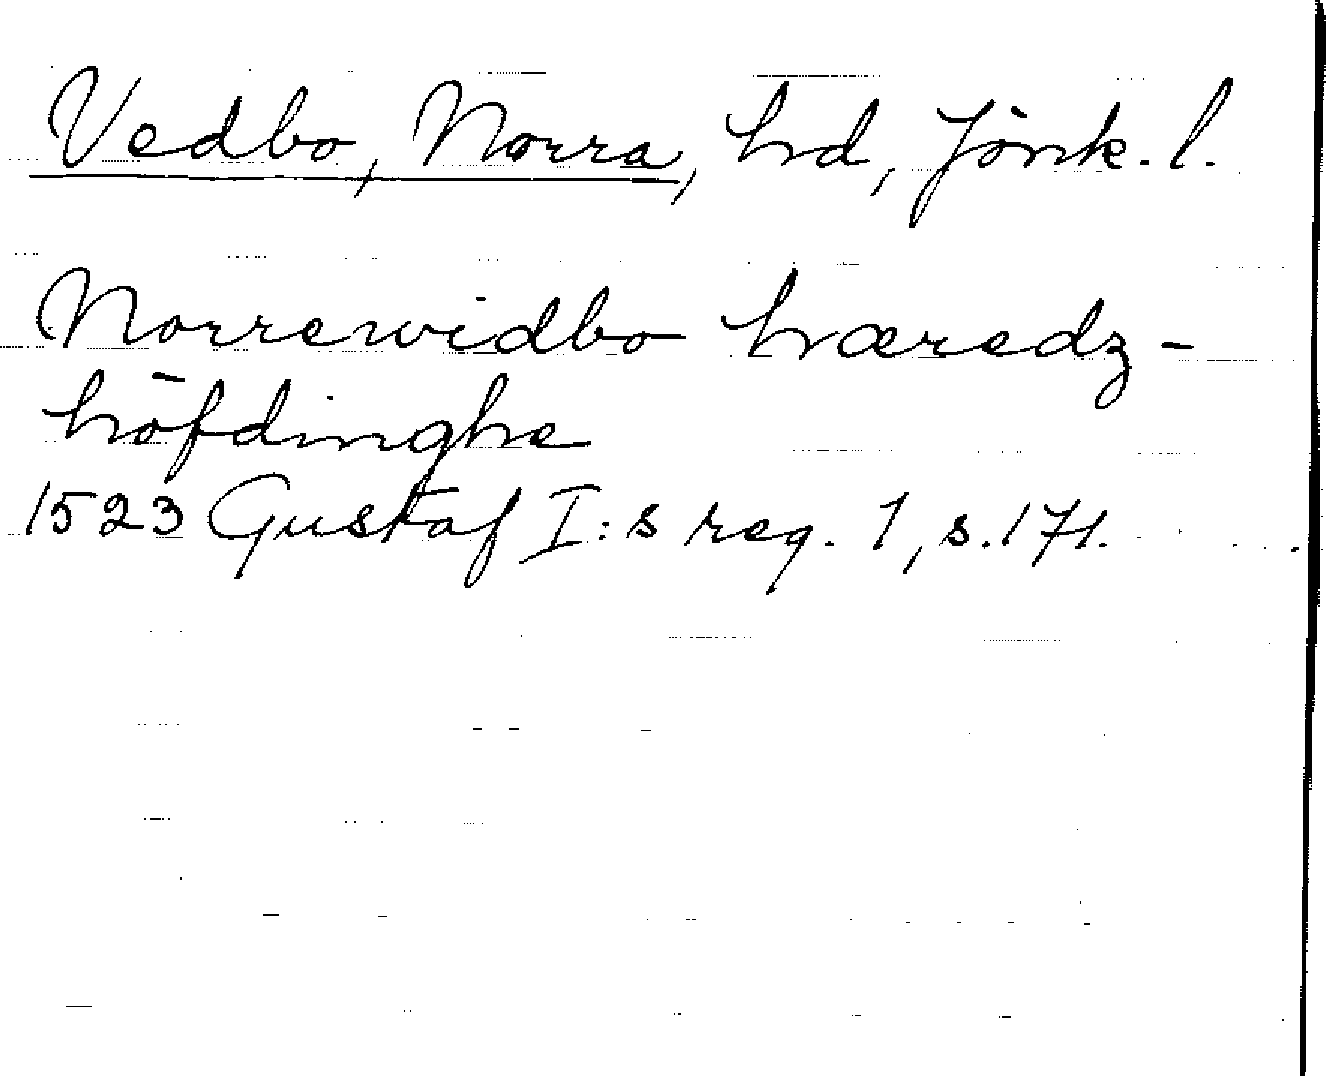 Vedbo, Norra, hd, Jönk. l.
Norrewidbo hæredz-
höfdinghe
1523 Gustaf I:s reg. 1, s. 171.